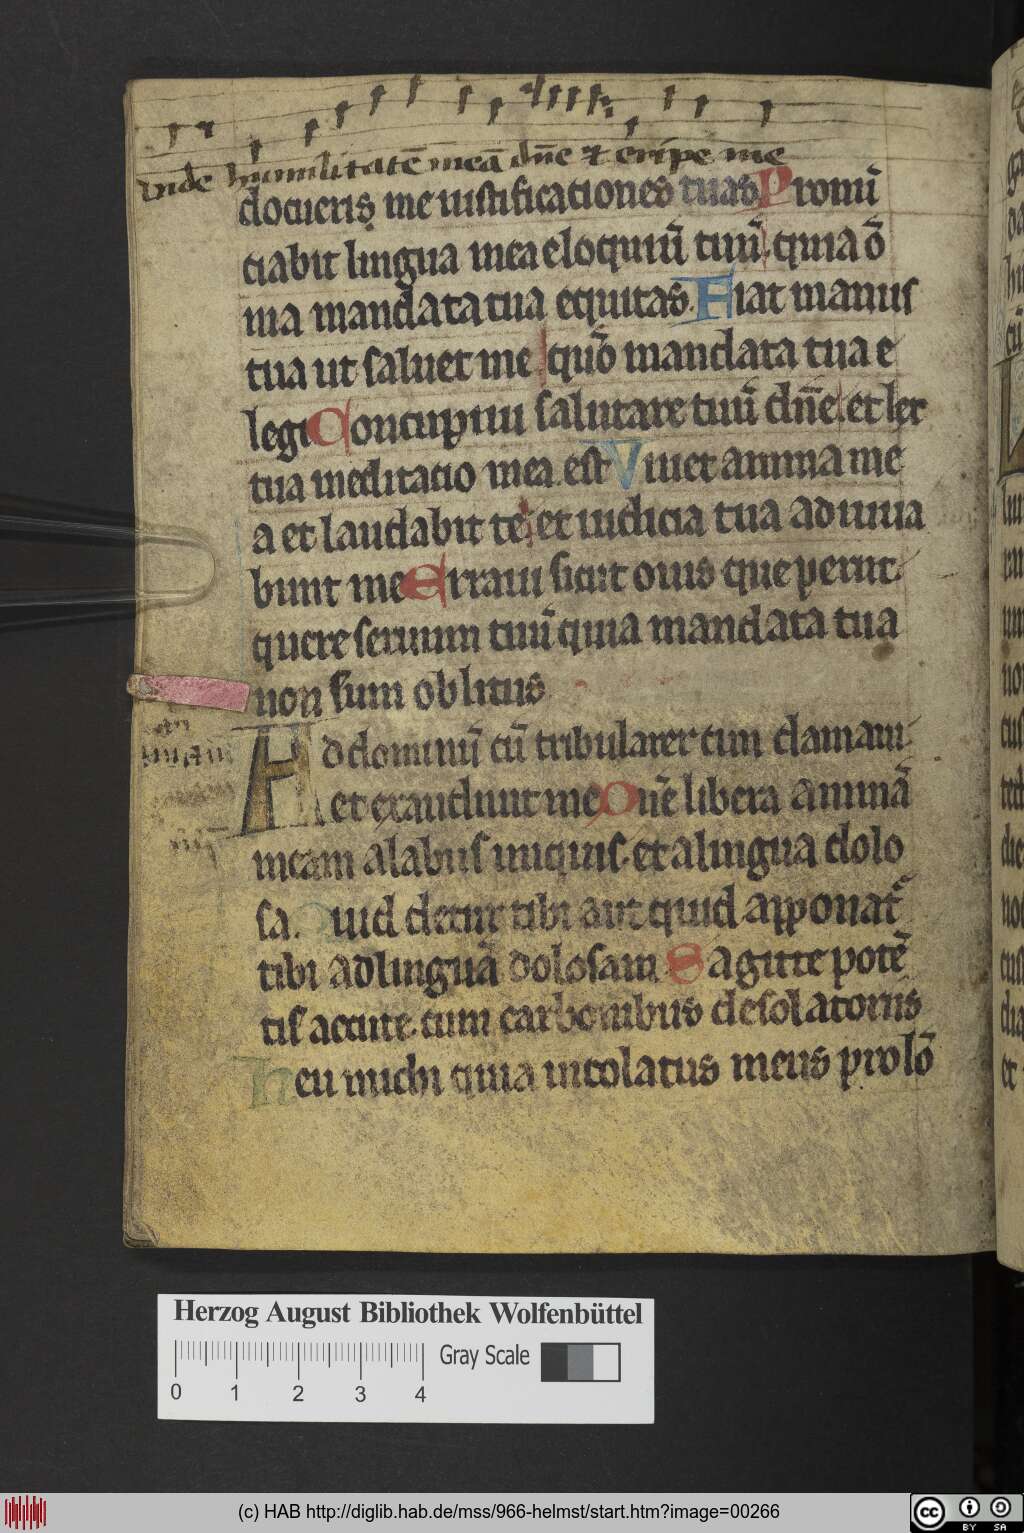 vide humilitatē meā dn̄e et eripe me
docueris me iustificationes tuas Pronū
ciabit lingua mea eloquiū tuū quia ō
nia mandata tua equitas. Fiat manus
tua ut saluet me quō mandata tua e
legi Concupiui salutare tuū dn̄e et lex
tua meditacio mea est Viuet anima me
a et laudabit te et iudicia tua adiuua
bunt me Erraui sicut ouis que periit
quere seruum tuū quia mandata tua
non sum oblitus
Ad dominū cū tribularer cim clamaui
et exaudiuit me Dn̄e libera animā
meam alabiis iniquis et alingua dolo
sa. Quid detur tibi aut quid apponat᷑
tibi adlinguā dolosam Sagitte potē
tis accute cum carbonibus desolatoriis
heu michi quia incolatus meus prolō
Herzog August Bibliothek Wolfenbüttel
Gray Scale
0 1 2 3 4
(c) HAB http://diglib.hab.de/mss/966-helmst/start.htm?image=00266
cc BY SA